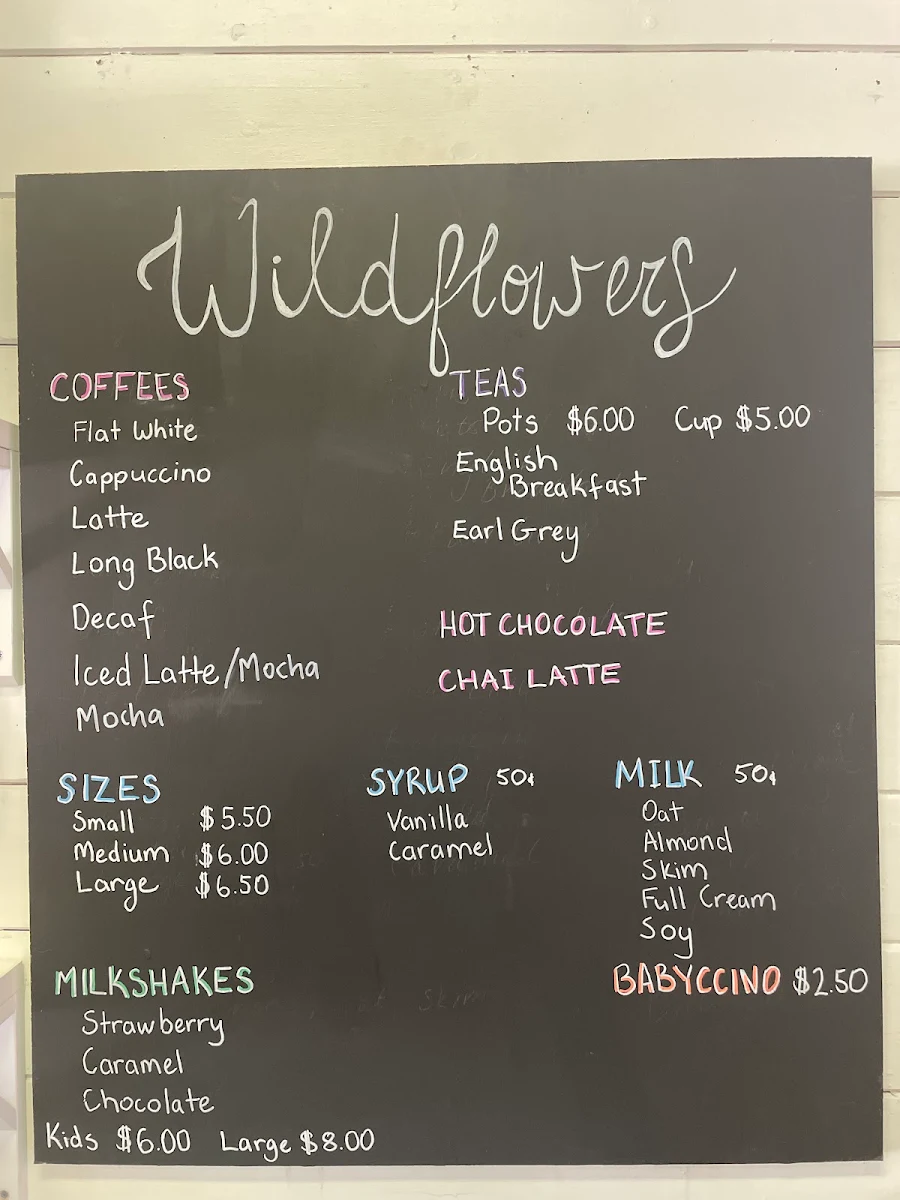 Wildflowers
COFFEES
Flat White
Cappuccino
Latte
Long Black
Decaf
Iced Latte/Mocha
Mocha
TEAS
Pots $6.00 Cup $5.00
English
Breakfast
Earl Grey
HOT CHOCOLATE
CHAI LATTE
SIZES
Small $5.50
Medium $6.00
Large $6.50
SYRUP 50¢
Vanilla
Caramel
MILK 50¢
Oat
Almond
Skim
Full Cream
Soy
BABYCCINO $2.50
MILKSHAKES
Strawberry
Caramel
Chocolate
Kids $6.00 Large $8.00